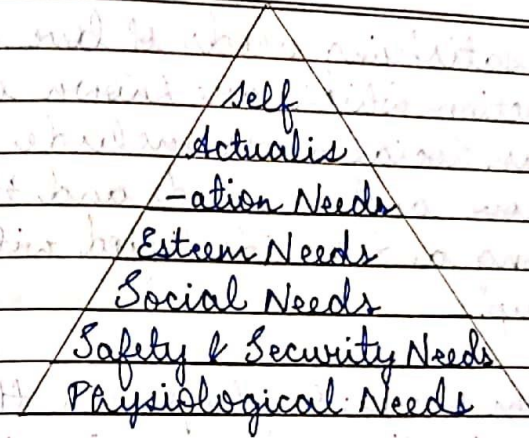 Self
Actualis
-ation Needs
Esteem Needs
Social Needs
Safety & Security Needs
Physiological Needs